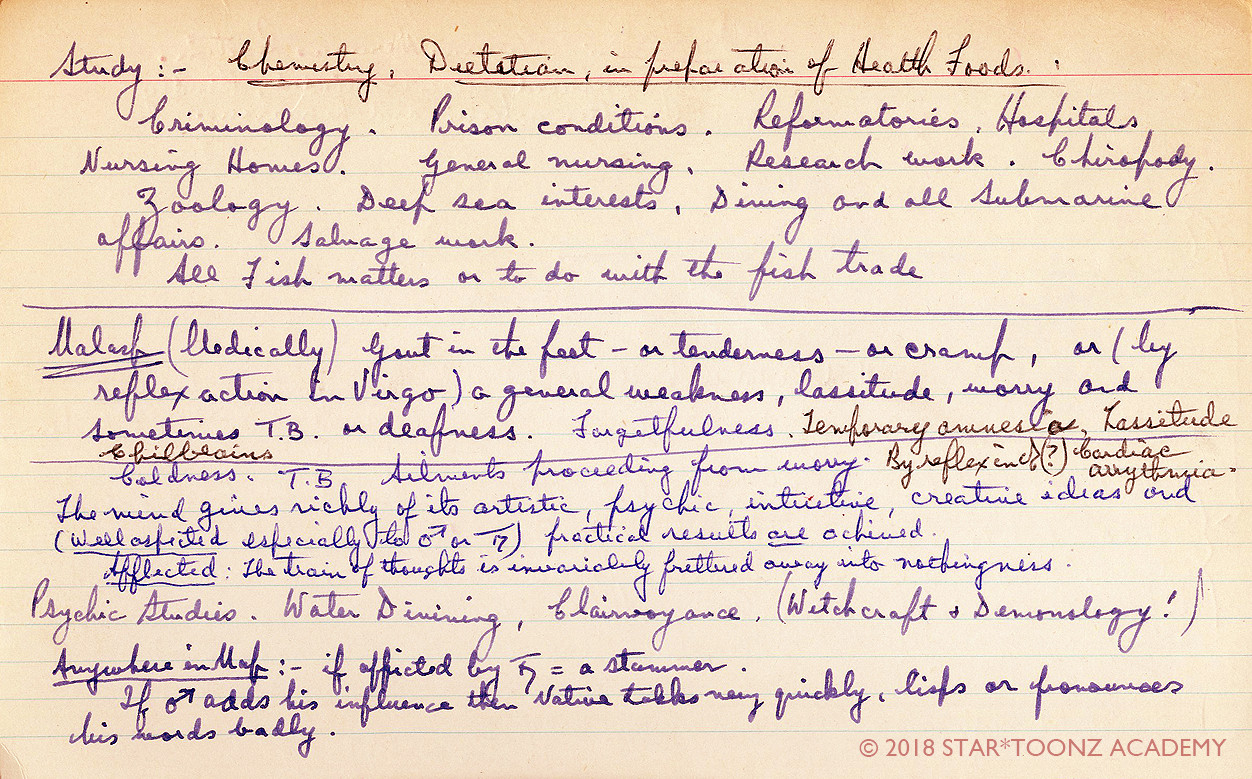 Study :- Chemistry, Dietetian, in preparation of Health Foods. :
Criminology. Prison conditions. Reformatories, Hospitals
Nursing Homes. General nursing, Research work. Chiropody.
Zoology. Deep sea interests, Diving and all submarine
affairs. Salvage work.
All Fish matters or to do with the fish trade
Malasp (Medically) Gout in the feet - or tenderness - or cramp, or (by
reflex action in Virgo) a general weakness, lassitude, worry and
sometimes T.B. or deafness. Forgetfulness. Temporary amnesia, Lassitude
Chilblains
Coldness. T.B Ailments proceeding from worry. By reflex in ♌(?) Cardiac
arrythmia.
The mind gives richly of its artistic, psychic, intuitive, creative ideas and
(well aspected especially to ♂ or ♄) practical results are achieved.
Afflected : The train of thoughts is invariably frettered away into nothingness.
Psychic Studies. Water Divining, Clairvoyance, (Witchcraft & Demonology!)
Anywhere in Map :- if afflicted by ♄ = a stammer.
If ♂ adds his influence then Native talks very quickly, lisps or pronounces
his words badly.
© 2018 STAR*TOONZ ACADEMY